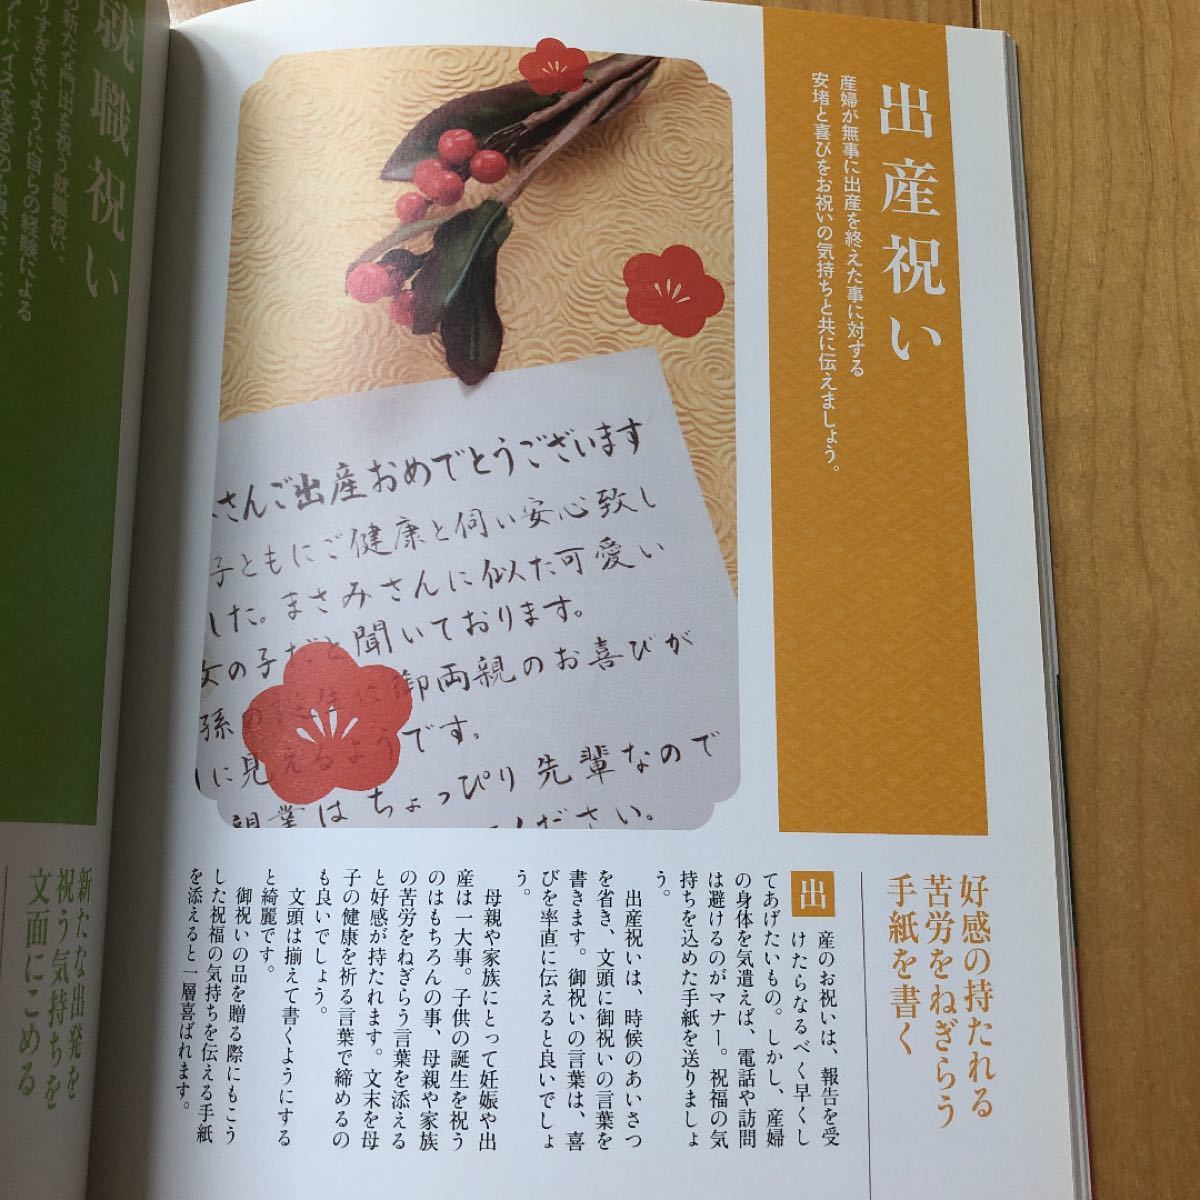 出産祝い
産婦が無事に出産を終えた事に対する
安堵と喜びをお祝いの気持ちと共に伝えましょう。
さんご出産おめでとうございます
子ともにご健康と伺い安心致し
した。まさみさんに似た可愛い
女の子だと聞いております。
孫の誕生に御両親のお喜びが
に見えるようです。
親業はちょっぴり先輩なので
ください。
好感の持たれる
苦労をねぎらう
手紙を書く
出産のお祝いは、報告を受
けたらなるべく早くし
てあげたいもの。しかし、産婦
の身体を気遣えば、電話や訪問
は避けるのがマナー。祝福の気
持ちを込めた手紙を送りましょ
う。
出産祝いは、時候のあいさつ
を省き、文頭に御祝いの言葉を
書きます。御祝いの言葉は、喜
びを率直に伝えると良いでしょ
う。
母親や家族にとって妊娠や出
産は一大事。子供の誕生を祝う
のはもちろんの事、母親や家族
の苦労をねぎらう言葉を添える
と好感が持たれます。文末を母
子の健康を祈る言葉で締めるの
も良いでしょう。
文頭は揃えて書くようにする
と綺麗です。
御祝いの品を贈る際にもこう
した祝福の気持ちを伝える手紙
を添えると一層喜ばれます。
就職祝い
の新たな門出を祝う就職祝い。
りすぎないように自らの経験による
新たな出発を
祝う気持ちを
文面にこめる